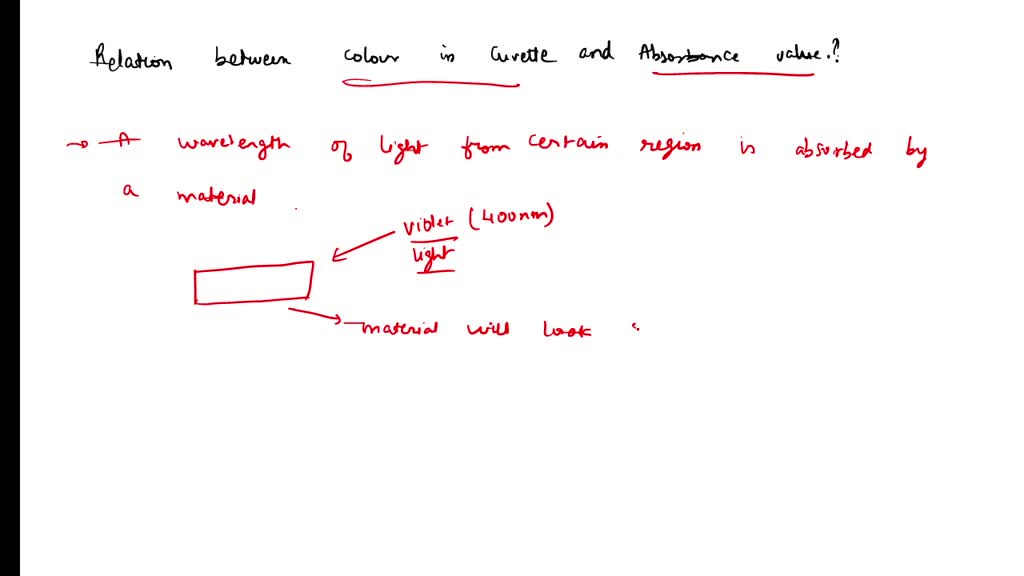 Relation between colour in Cuvette and Absorbance value.?
→ A wavelength of light from certain region is absorbed by
a material
violet (400nm)
light
material will look